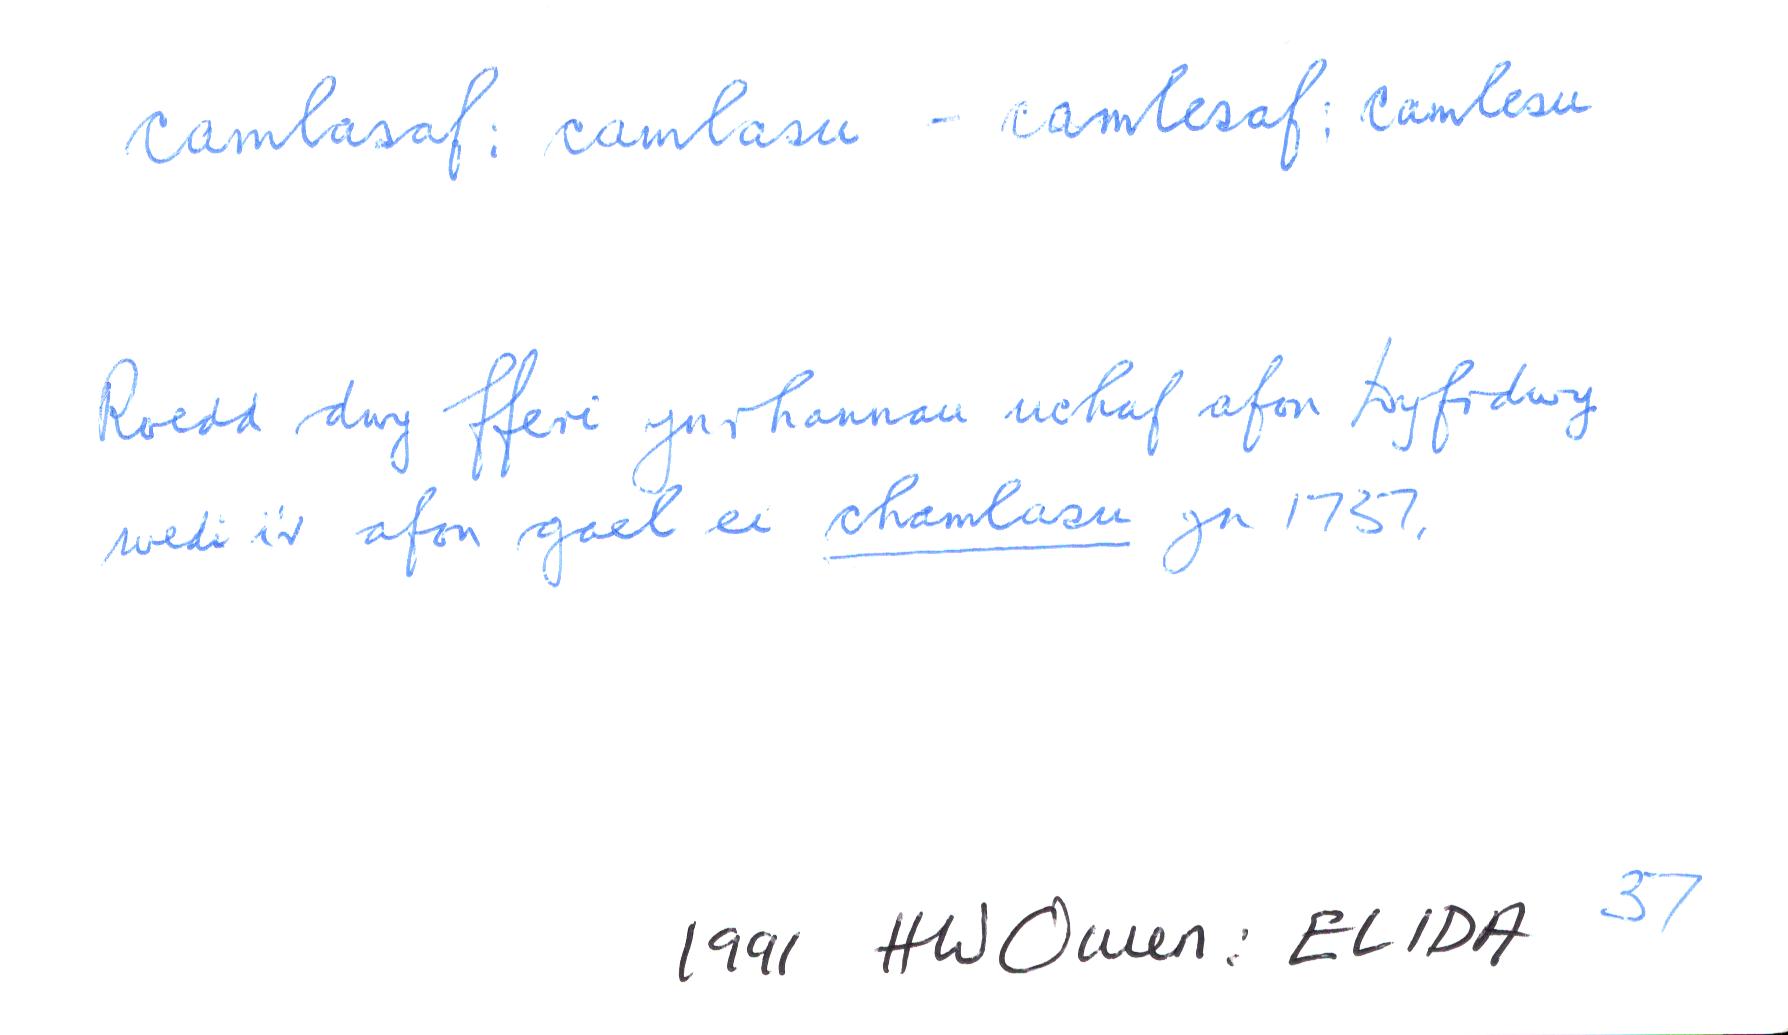 camlasaf: camlasu - camlesaf: camlesu
Roedd dwy fferi ynrhannau uchaf afon Dyfrdwy
wedi i'r afon gael ei chamlasu yn 1737.
1991 HW Owen: ELIDA 37